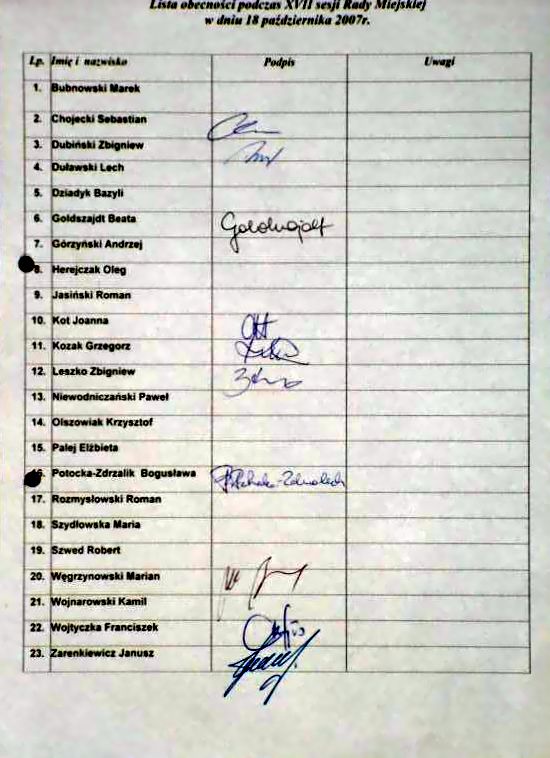 Lista obecności podczas XVII sesji Rady Miejskiej
w dniu 18 października 2007r.
Lp. Imię i nazwisko Podpis Uwagi
1. Bubnowski Marek
2. Chojecki Sebastian
3. Dubiński Zbigniew
4. Duławski Lech
5. Dziadyk Bazyli
6. Goldszajdt Beata
7. Górzyński Andrzej
8. Herejczak Oleg
9. Jasiński Roman
10. Kot Joanna
11. Kozak Grzegorz
12. Leszko Zbigniew
13. Niewodniczański Paweł
14. Olszowiak Krzysztof
15. Palej Elżbieta
16. Potocka-Zdrzalik Bogusława
17. Rozmysłowski Roman
18. Szydłowska Maria
19. Szwed Robert
20. Węgrzynowski Marian
21. Wojnarowski Kamil
22. Wojtyczka Franciszek
23. Zarenkiewicz Janusz